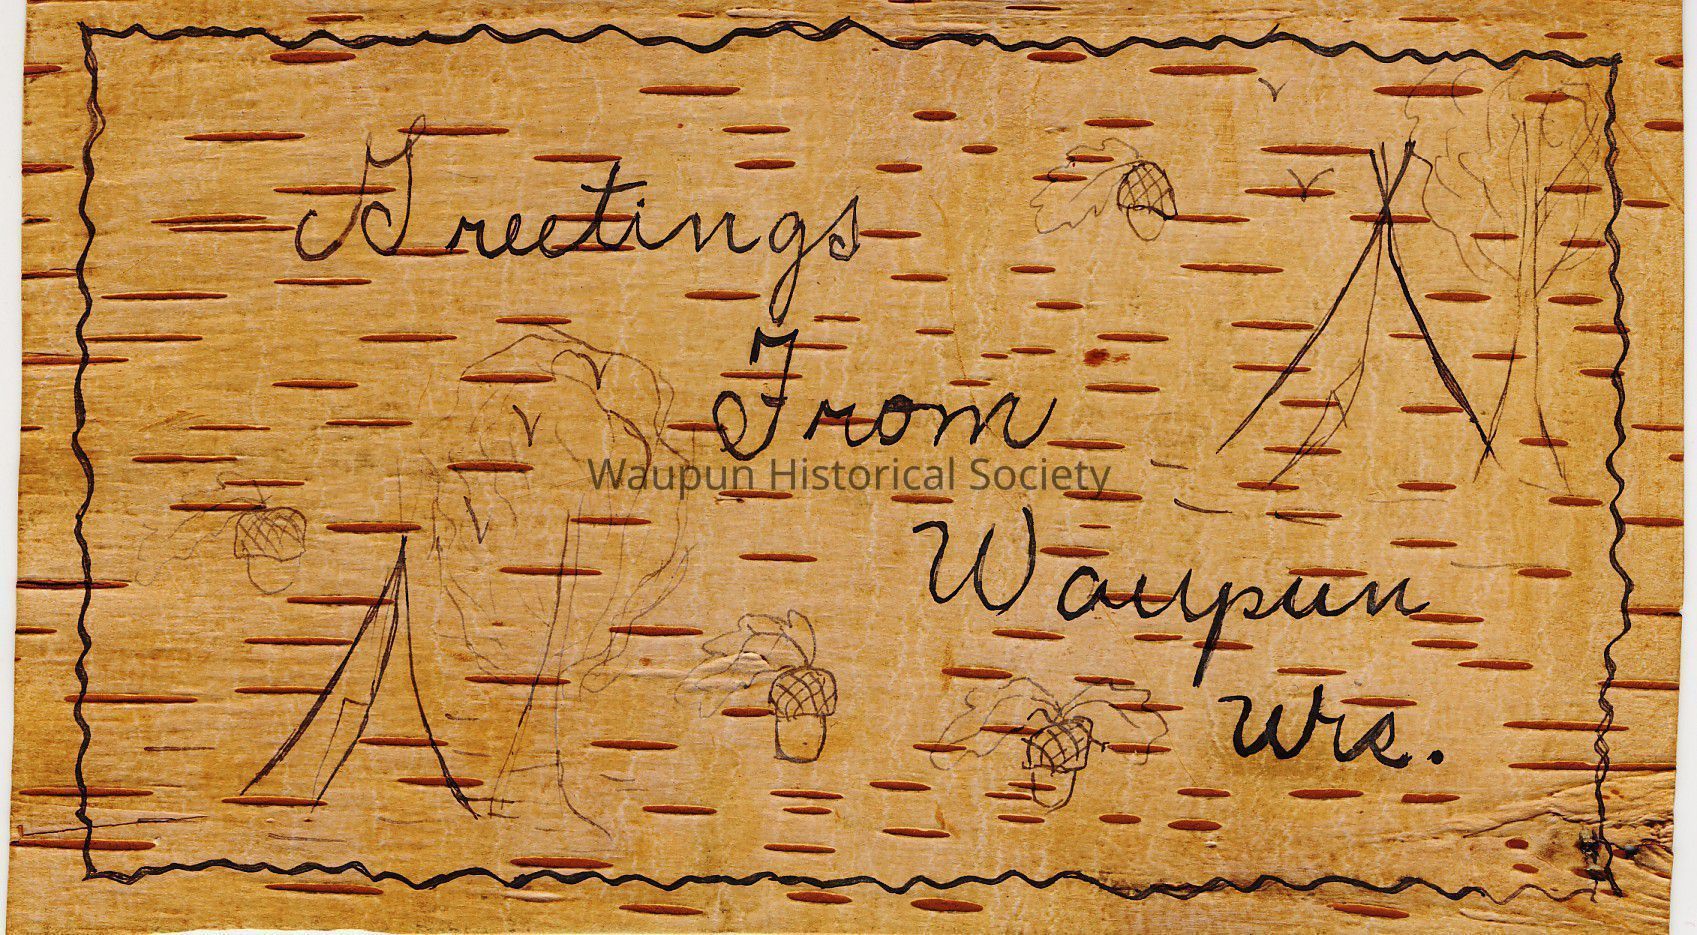 Greetings
From
Waupun Historical Society
Waupun
Wis.